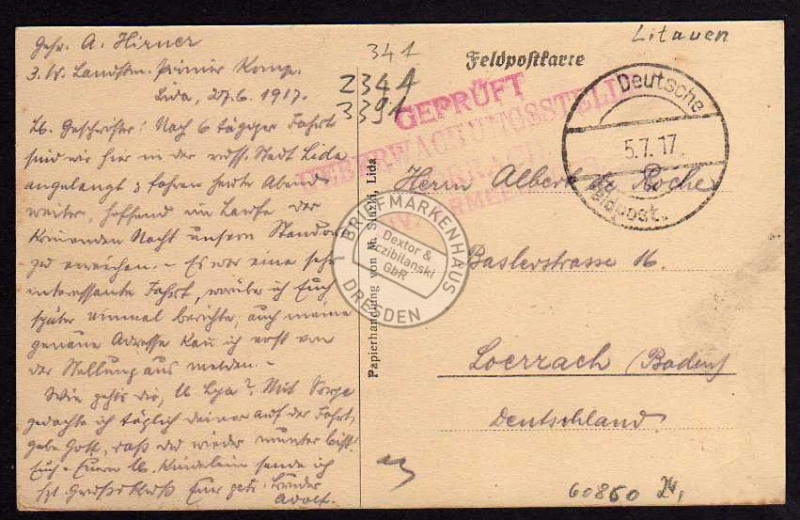 Gefr. A. Hirner
3. W. Landstm. Pionier Komp.
Lida, 27.6.1917.
Lb. Geschwister! Nach 6 tägiger Fahrt
sind wir hier in der russ. Stadt Lida
angelangt & fahren heute Abend
weiter, hoffend im Laufe der
kommenden Nacht unsern Standort
zu erreichen. – Es war eine sehr
interessante Fahrt, worüber ich Euch
später einmal berichte, auch meine
genaue Adresse kann ich erst von
der Stellung aus melden –
Wie gehts dir, lb. ? Mit Sorge
gedachte ich täglich deiner auf der Fahrt,
gebe Gott, daß du wieder munter bist.
Euch & Euern lb. Kindelein sende ich
Bruder
Adolf.
Papierhandlung von M. Lida
341
2344
3391
Feldpostkarte
Litauen
GEPRÜFT
Deutsche
5.7.17.
Feldpost.
Herrn Albert Roche
Baslerstrasse 16
Loerrach (Baden)
Deutschland
60850 24,
BRIEFMARKENHAUS
Dextor &
Sczibilanski
GbR
DRESDEN